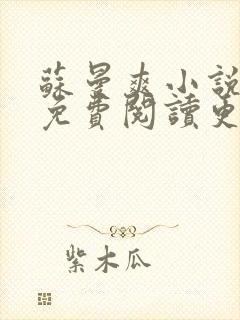 蘇曼爽小說
免費閱讀更
紫木瓜